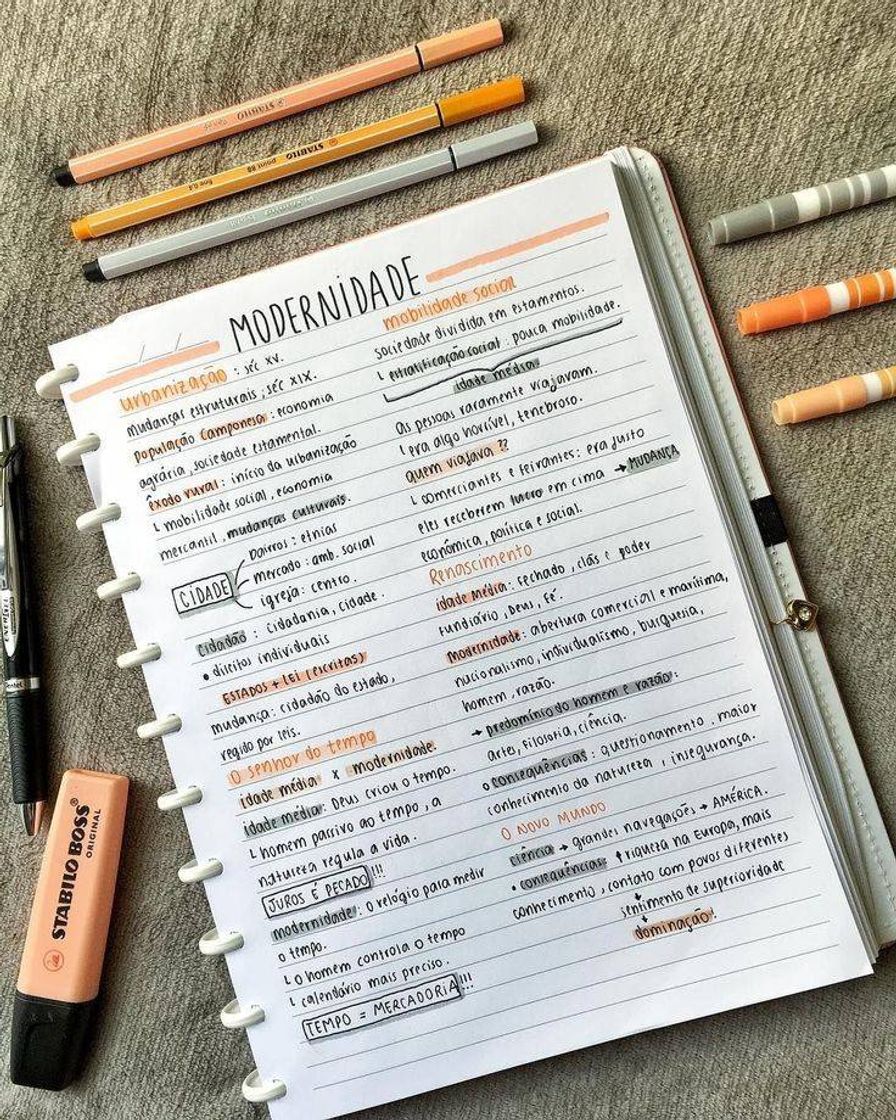 STABILO
STABILO point 88 fine 0,4
MODERNIDADE
urbanização : séc XV.
mudanças estruturais ; séc XIX.
População Camponesa : economia
agrária , sociedade estamental.
êxodo rural : início da urbanização
└ mobilidade social , economia
mercantil , mudanças culturais.
CIDADE
bairros : etnias
mercado : amb. social
igreja : centro.
cidadão : cidadania, cidade.
• direitos individuais
ESTADOS + LEI (ESCRITAS)
mudança : cidadão do estado,
regido por leis.
O senhor do tempo
idade média x modernidade.
idade média : Deus criou o tempo.
└ homem passivo ao tempo , a
natureza regula a vida.
JUROS É PECADO !!!
modernidade : o relógio para medir
o tempo.
└ o homem controla o tempo
└ calendário mais preciso.
TEMPO = MERCADORIA !!!
mobilidade social
sociedade dividida em estamentos.
└ estratificação social : pouca mobilidade.
idade média
As pessoas raramente viajavam.
└ era algo horrível, tenebroso.
quem viajava ??
└ comerciantes e feirantes : era justo
eles receberem lucro em cima → MUDANÇA
econômica, política e social.
Renascimento
idade média : fechado , clãs e poder
fundiário , Deus , fé.
modernidade : abertura comercial e marítima,
nacionalismo, individualismo, burguesia,
homem , razão.
→ predomínio do homem e razão :
artes, filosofia, ciência.
o consequências : questionamento , maior
conhecimento da natureza , insegurança.
O NOVO MUNDO
ciência → grandes navegações → AMÉRICA.
• consequências : ↑ riqueza na Europa, mais
conhecimento , contato com povos diferentes
↓
sentimento de superioridade
↓
dominação !
STABILO BOSS®
ORIGINAL
ENERGEL
Pentel